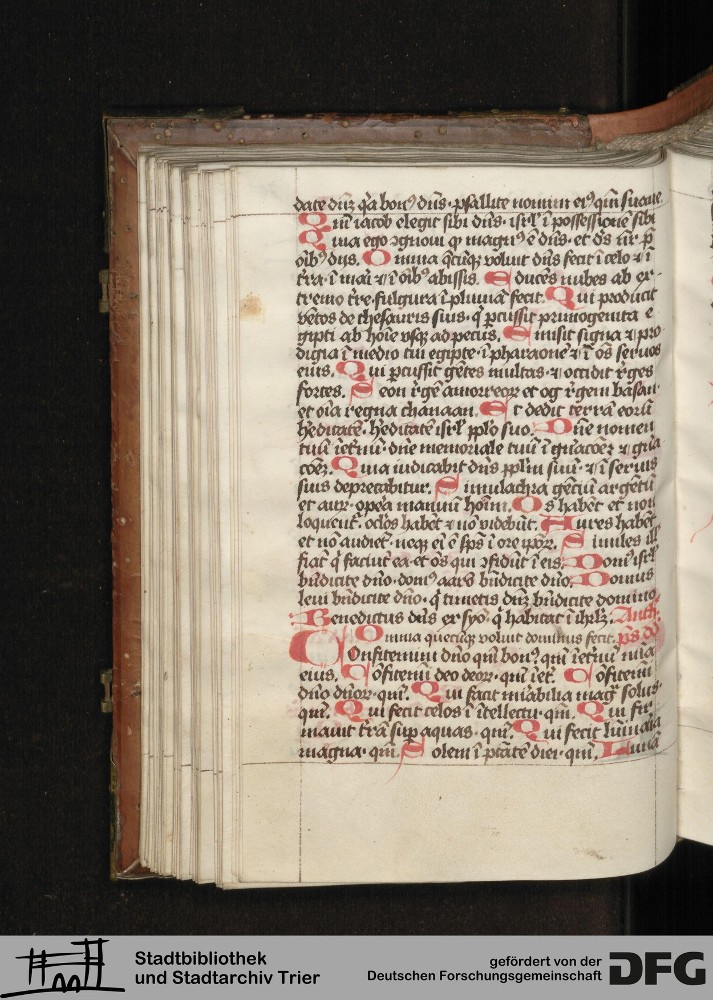 date dn̄m q̄a bonꝰ dn̄s · psallite nomini eiꝰ qm̄ suaue
Qm̄ iacob elegit sibi dn̄s · isrl̄ ī possessionē sibi
Quia ego ↄgnoui ꝙ magnꝰ ē dn̄s · et ds̄ nr̄ p̄
oīb⁹ diis. Omnia q̄cūq̄ voluit dn̄s fecit ī celo ⁊ ī
t̄ra · ī mari ⁊ ī oīb⁹ abissis. Educēs nubes ab ex-
tremo t̄re · fulgura ī pluuiā fecit. Qui producit
vētos de thesauris suis · q̄ ꝑcussit primogenita e
gipti ab hoīe vsq̄ ad pecus. Emisit signa ⁊ pro
digia ī medio tui egipte · ī pharaonē ⁊ ī os̄ seruos
eius. Qui ꝑcussit gētes multas · ⁊ occidit r̄ges
fortes. Seon r̄gē amorreoꝝ et og r̄gem basan ·
et oīa regna chanaan. Et dedit terrā eorū
h̄editatē · h̄editatē isrl̄ pplō suo. Dn̄e nomen
tuū īet̄nū · dn̄e memoriale tuū ī gn̄acōeꝫ ⁊ gn̄a
cōeꝫ. Quia iudicabit dn̄s pplm̄ suū · ⁊ ī seruis
suis deprecabitur. Simulachra gēciū argētū
et auꝝ · opera manuū hoīm. Os habēt et non
loquent᷑ · oclos habēt ⁊ nō videbūt. Aures habēt
et nō audiēt · neqꝫ ei ē sps̄ ī ore ip̄oꝝ. Similes ill
fiāt q̄ faciūt ea · et os̄ qui ↄfidūt ī eis. Domꝰ isrl̄
bn̄dicite dn̄o · domꝰ aarō bn̄dicite dn̄o. Domus
leui bn̄dicite dn̄o · q̄ timetis dn̄m bn̄dicite domino
Benedictus dn̄s ex syō · q̄ habitat ī ihrl̄m. Anth.
Omnia quecūq̄ voluit dominus fecit. ps̄ dd̄
Confitemini dn̄o qm̄ bonꝰ · qm̄ īet̄nū mīa
eius. Cōfitemī deo deoꝝ · qm̄ īet̄. Cōfitemī
dn̄o dn̄oꝝ · qm̄. Qui facit mirabilia maḡ solus ·
qm̄. Qui fecit celos ī ītellectu · qm̄. Qui fir
mauit t̄rā suꝑ aquas · qm̄. Qui fecit lūinaria
magna · qm̄. Solem ī ptātē diei · qm̄. Lunā
Stadtbibliothek
und Stadtarchiv Trier
gefördert von der
Deutschen Forschungsgemeinschaft
DFG